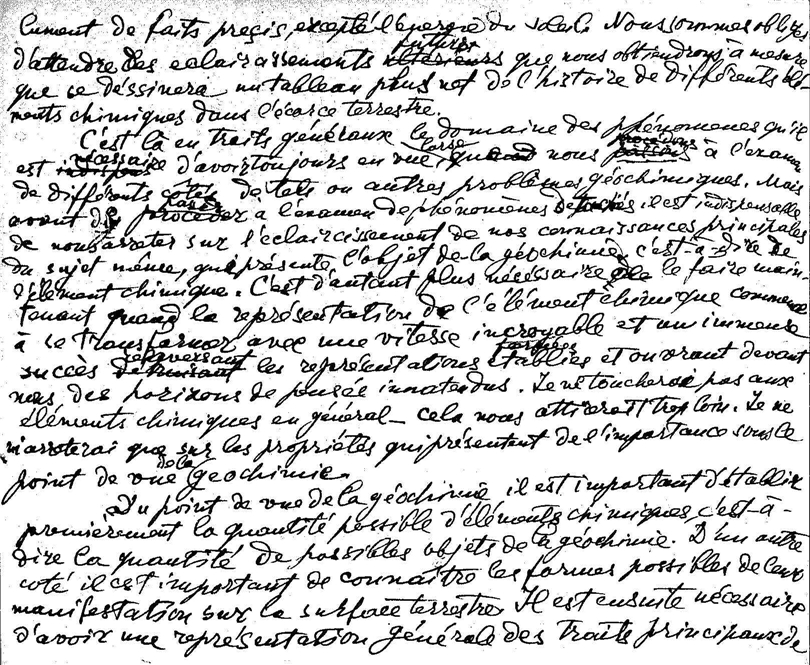 lument de faits precis, excepté l'energie du soleil. Nous sommes obligés
d'attendre des eclairaissements futurs que nous obtiendrons à mesure
que se dessinera un tableau plus net de l'histoire de différents élé-
ments chimiques dans l'écorce terrestre.
C'est là en traits généraux le domaine des phénomènes qu'il
est nécessaire d'avoir toujours en vue, lorsque nous procédons à l'examen
de différents côtés de tels ou autres problèmes géochimiques. Mais
avant de procéder à l'examen de phénomènes détachés il est indispensable
de nous arreter sur l'éclaircissement de nos connaissances principales
du sujet même, qui présente l'objet de la géochimie, c'est-à-dire de
l'élément chimique. C'est d'autant plus nécessaire de le faire main-
tenant quand la représentation de l'élément chimique commence
à se transformer avec une vitesse incroyable et un immense
succès renversant les représentations établies et ouvrant devant
nous des horizons de pensée innatendus. Je ne toucherai pas aux
éléments chimiques en général – cela nous attirerait trop loin. Je ne
m'arreterai que sur les propriétés qui présentent de l'importance sous le
point de vue de la Geochimie.
Du point de vue de la géochimie il est important d'établir
premièrement la quantité possible d'éléments chimiques, c'est-à-
dire la quantité de possibles objets de la géochimie. D'un autre
coté il est important de connaître les formes possibles de leur
manifestation sur la surface terrestre. Il est ensuite nécessaire
d'avoir une représentation générale des traits principaux de